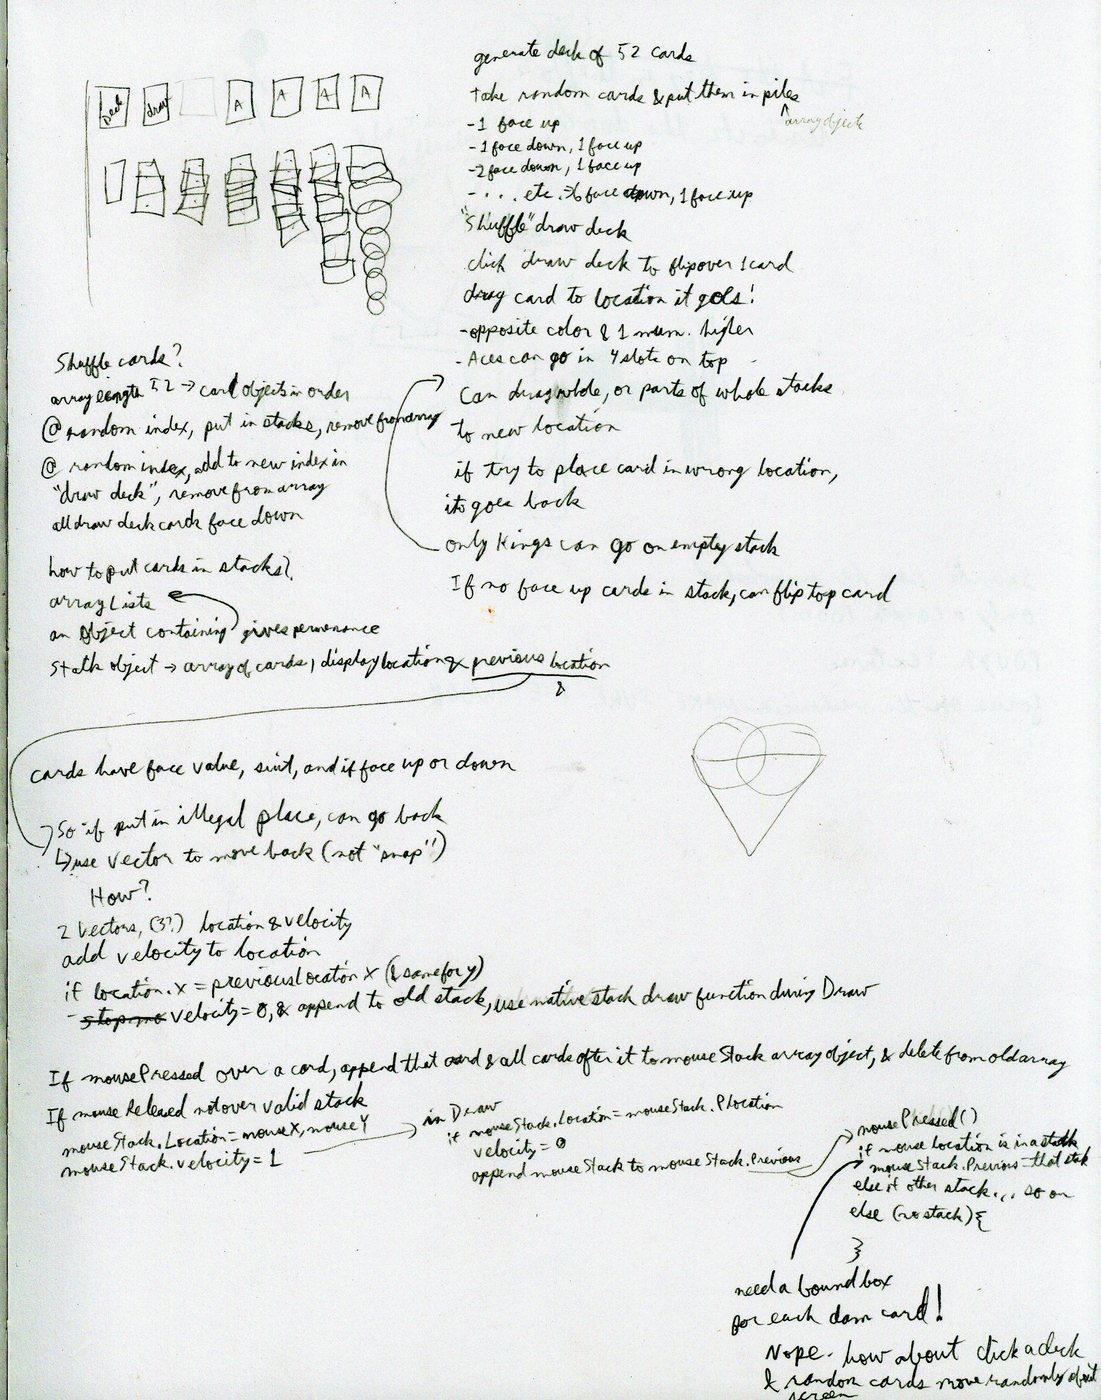 Deck draw A A A A
generate deck of 52 cards
take random cards & put them in piles
array objects
-1 face up
-1 face down, 1 face up
-2 face down, 1 face up
-... etc. → 6 face down, 1 face up
"Shuffle" draw deck
click draw deck to flip over 1 card
drag card to location it goes!
-opposite color & 1 num. higher
-Aces can go in 4 slots on top
can drag whole, or parts of whole stacks
to new location
if try to place card in wrong location,
it goes back
only Kings can go on empty stack
If no face up cards in stack, can flip top card
Shuffle cards?
array length 52 → card objects in order
@ random index, put in stacks, remove from array
@ random index, add to new index in
"draw deck", remove from array
all draw deck cards face down
how to put cards in stacks?
arrayLists
an Object containing gives permenance
Stack object → array of cards, display location & previous location
&
cards have face value, suit, and if face up or down
→ So if put in illegal place, can go back
↳ use vector to move back (not "snap")
How?
2 Vectors, (3?) location & velocity
add velocity to location
if location.x = previousLocation x (& same for y)
- velocity = 0, & append to old stack, use native stack draw function during Draw
If mousePressed over a card, append that card & all cards after it to mouseStack array object, & delete from old array
If mouse Released not over valid stack
mouseStack.Location = mouseX, mouseY
mouseStack.velocity = 1
in Draw
if mouseStack.Location = mouseStack.PLocation
velocity = 0
append mouseStack to mouseStack.Previous
mousePressed()
if mouse location is in a stack
mouseStack.Previous = that stack
else if other stack... so on
else (no stack) {
}
need a bound box
for each damn card!
Nope. how about click a deck
& random cards move randomly about
screen